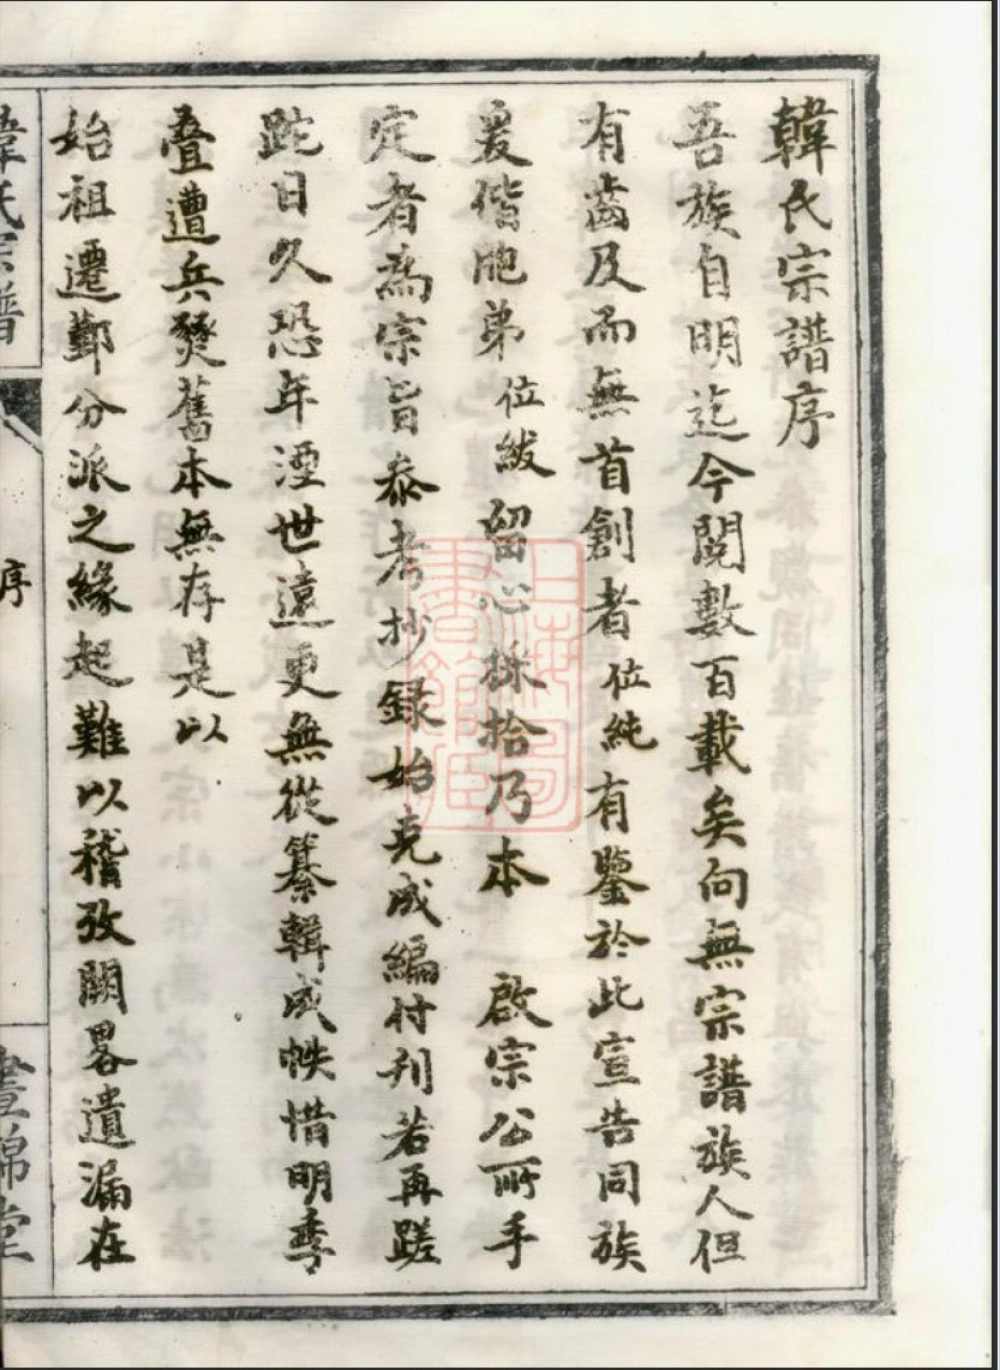 韓氏宗譜序
吾族自明迄今閱數百載矣向無宗譜族人但
有齒及而無首創者位純有鑒於此宣告同族
爰偕胞弟位紱留心採拾乃本 啟宗公所手
定者為宗旨叅考抄錄始克成編付刊若再蹉
跎日久恐年湮世遠更無從纂輯成帙惜明季
疊遭兵燹舊本無存是以
始祖遷鄞分派之緣起難以稽攷闕畧遺漏在
韓氏宗譜
序
晝錦堂
上海圖書館藏